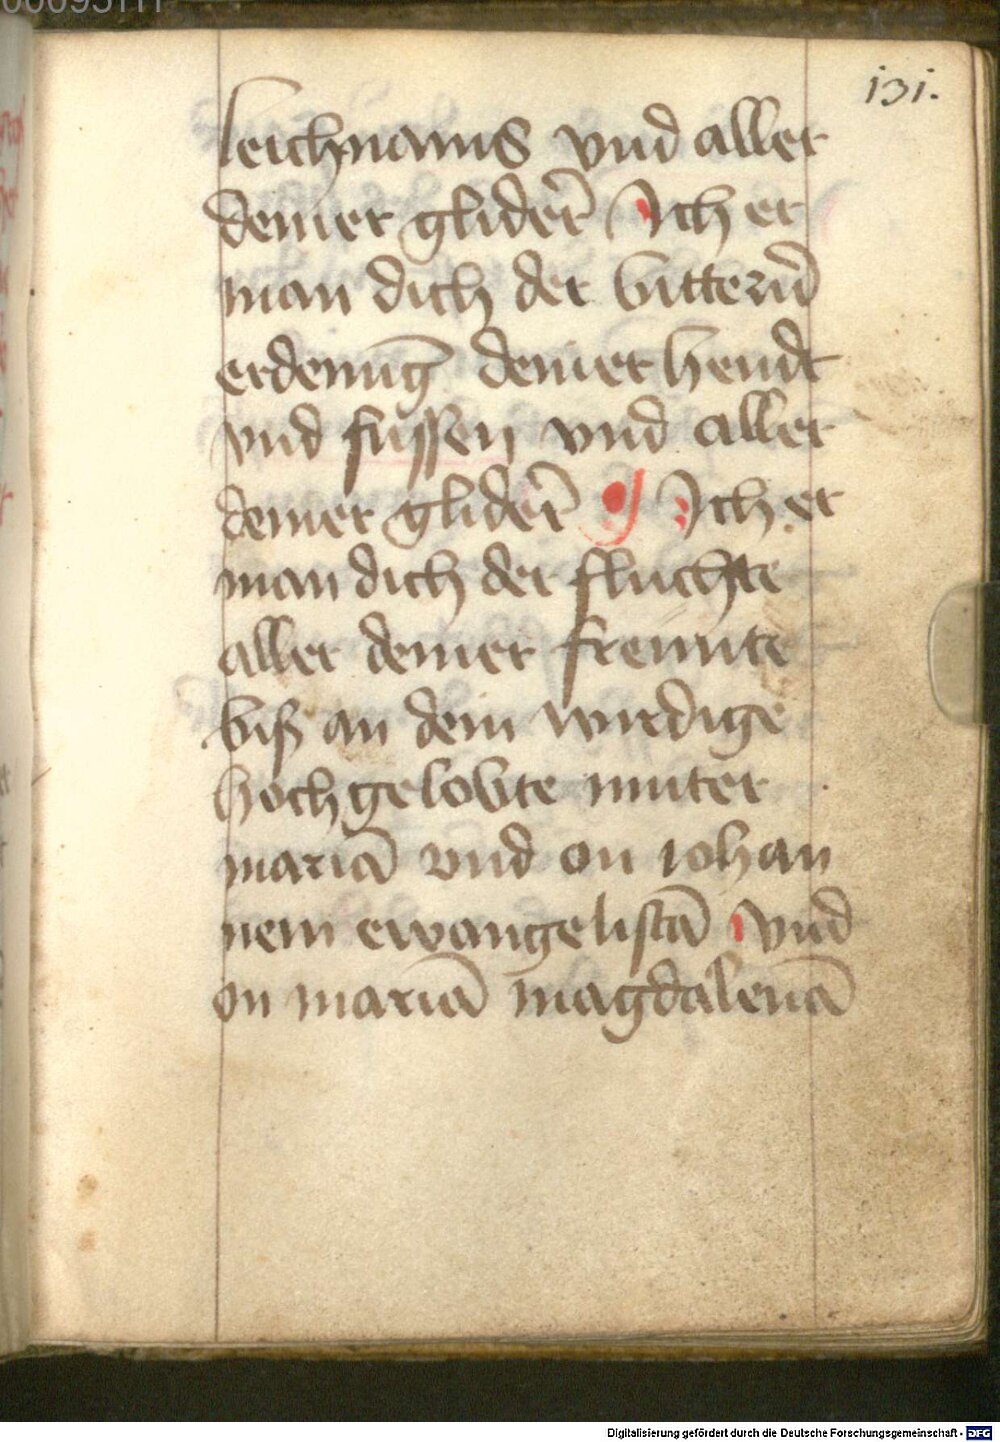 131.
leichnams vnd aller
deiner glider̄ Ich er
man dich der bitterñ
erdenunḡ deiner hendt
vnd fussen vnd aller
deiner glider̄ Ich er
man dich der fluchte
aller deiner freunte
biß an dein wirdige
hochgelobte muter
mariā vnd on iohan
nem ewangelistā vnd
on mariā magdalenā
Digitalisierung gefördert durch die Deutsche Forschungsgemeinschaft - DFG